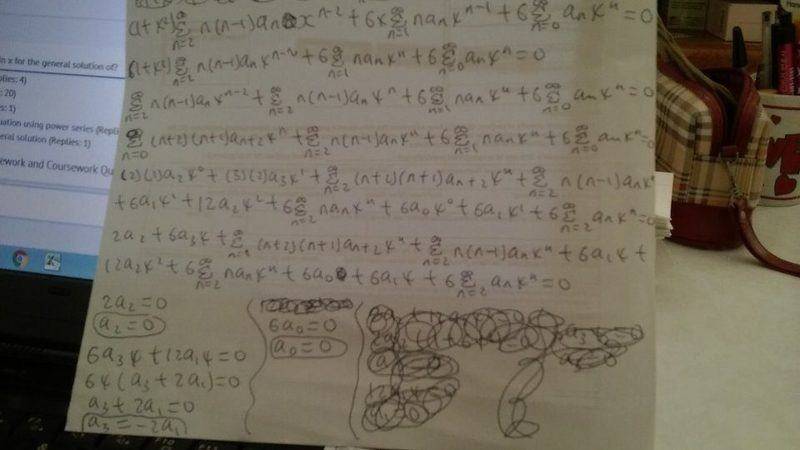 n x for the general solution of?
plies: 4)
: 20)
s: 1)
uation using power series (Repli
eral solution (Replies: 1)
ework and Coursework Qu
(1+x²) ∞Σn=2 n(n-1)an x^n-2 + 6x ∞Σn=1 nanx^n-1 + 6 ∞Σn=0 anx^n = 0
(1+x²) ∞Σn=2 n(n-1)anx^n-2 + 6 ∞Σn=1 nanx^n + 6 ∞Σn=0 anx^n = 0
∞Σn=2 n(n-1)anx^n-2 + ∞Σn=2 n(n-1)anx^n + 6 ∞Σn=1 nanx^n + 6 ∞Σn=0 anx^n = 0
∞Σn=0 (n+2)(n+1)an+2x^n + ∞Σn=2 n(n-1)anx^n + 6 ∞Σn=1 nanx^n + 6 ∞Σn=0 anx^n = 0
(2)(1)a2x^0 + (3)(2)a3x^1 + ∞Σn=2 (n+2)(n+1)an+2x^n + ∞Σn=2 n(n-1)anx^n
+ 6a1x^1 + 12a2x^2 + 6 ∞Σn=2 nanx^n + 6a0x^0 + 6a1x^1 + 6 ∞Σn=2 anx^n = 0
2a2 + 6a3x + ∞Σ (n+2)(n+1)an+2x^n + ∞Σn=2 n(n-1)anx^n + 6a1x +
12a2x² + 6 ∞Σn=2 nanx^n + 6a0 + 6a1x + 6 ∞Σn=2 anx^n = 0
2a2 = 0
a2 = 0
6a3x + 12a1x = 0
6x(a3 + 2a1) = 0
a3 + 2a1 = 0
a3 = -2a1
6a0 = 0
a0 = 0